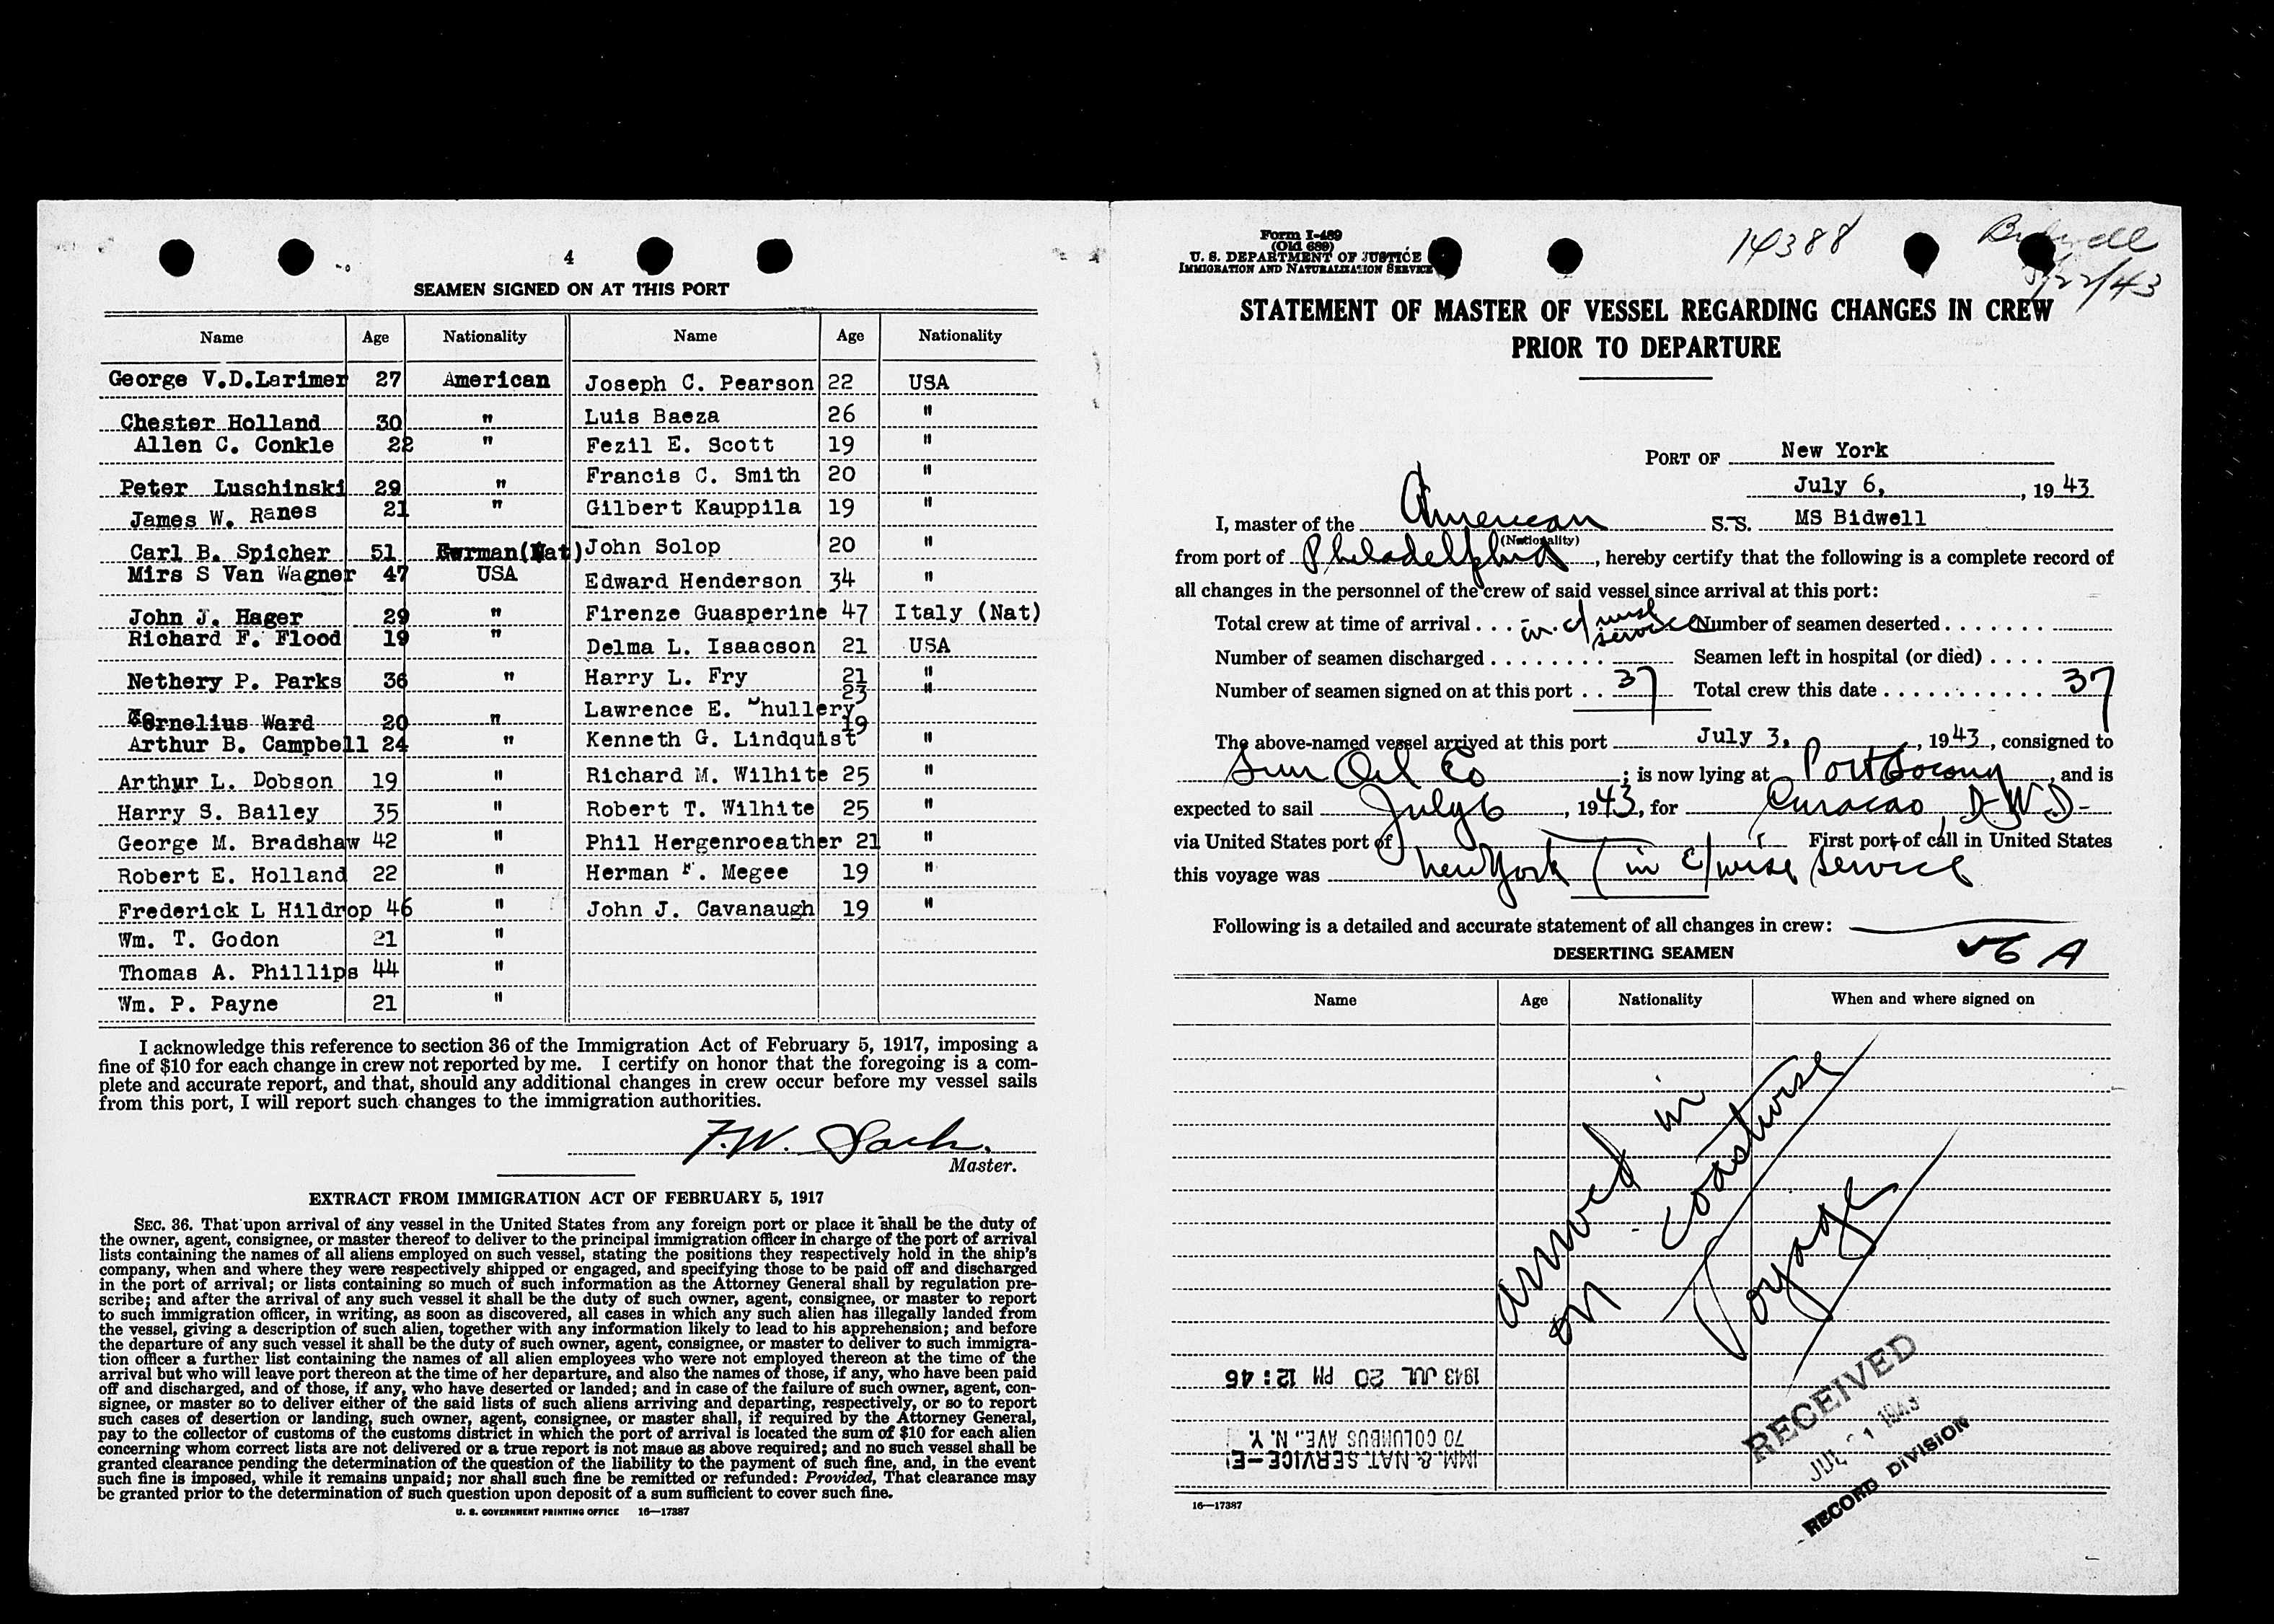 4
SEAMEN SIGNED ON AT THIS PORT
Name Age Nationality Name Age Nationality
George V.D.Larimer 27 American Joseph C. Pearson 22 USA
Chester Holland 30 " Luis Baeza 26 "
Allen C. Conkle 22 " Fezil E. Scott 19 "
Peter Luschinski 29 " Francis C. Smith 20 "
James W. Ranes 21 " Gilbert Kauppila 19 "
Carl B. Spicher 51 German(Nat) John Solop 20 "
Mirs S Van Wagner 47 USA Edward Henderson 34 "
John J. Hager 29 " Firenze Guasperine 47 Italy (Nat)
Richard F. Flood 19 " Delma L. Isaacson 21 USA
Nethery P. Parks 36 " Harry L. Fry 21 "
Cornelius Ward 20 " Lawrence E. hullery 23 "
Arthur B. Campbell 24 " Kenneth G. Lindquist 19 "
Arthur L. Dobson 19 " Richard M. Wilhite 25 "
Harry S. Bailey 35 " Robert T. Wilhite 25 "
George M. Bradshaw 42 " Phil Hergenroeather 21 "
Robert E. Holland 22 " Herman F. Megee 19 "
Frederick L Hildrop 46 " John J. Cavanaugh 19 "
Wm. T. Godon 21 "
Thomas A. Phillips 44 "
Wm. P. Payne 21 "
I acknowledge this reference to section 36 of the Immigration Act of February 5, 1917, imposing a
fine of $10 for each change in crew not reported by me. I certify on honor that the foregoing is a com-
plete and accurate report, and that, should any additional changes in crew occur before my vessel sails
from this port, I will report such changes to the immigration authorities.
F.W.
Master.
EXTRACT FROM IMMIGRATION ACT OF FEBRUARY 5, 1917
SEC. 36. That upon arrival of any vessel in the United States from any foreign port or place it shall be the duty of
the owner, agent, consignee, or master thereof to deliver to the principal immigration officer in charge of the port of arrival
lists containing the names of all aliens employed on such vessel, stating the positions they respectively hold in the ship's
company, when and where they were respectively shipped or engaged, and specifying those to be paid off and discharged
in the port of arrival; or lists containing so much of such information as the Attorney General shall by regulation pre-
scribe; and after the arrival of any such vessel it shall be the duty of such owner, agent, consignee, or master to report
to such immigration officer, in writing, as soon as discovered, all cases in which any such alien has illegally landed from
the vessel, giving a description of such alien, together with any information likely to lead to his apprehension; and before
the departure of any such vessel it shall be the duty of such owner, agent, consignee, or master to deliver to such immigra-
tion officer a further list containing the names of all alien employees who were not employed thereon at the time of the
arrival but who will leave port thereon at the time of her departure, and also the names of those, if any, who have been paid
off and discharged, and of those, if any, who have deserted or landed; and in case of the failure of such owner, agent, con-
signee, or master so to deliver either of the said lists of such aliens arriving and departing, respectively, or so to report
such cases of desertion or landing, such owner, agent, consignee, or master shall, if required by the Attorney General,
pay to the collector of customs of the customs district in which the port of arrival is located the sum of $10 for each alien
concerning whom correct lists are not delivered or a true report is not made as above required; and no such vessel shall be
granted clearance pending the determination of the question of the liability to the payment of such fine, and, in the event
such fine is imposed, while it remains unpaid; nor shall such fine be remitted or refunded: Provided, That clearance may
be granted prior to the determination of such question upon deposit of a sum sufficient to cover such fine.
U. S. GOVERNMENT PRINTING OFFICE 16—17387
Form I-489
(Old 689)
U. S. DEPARTMENT OF JUSTICE
IMMIGRATION AND NATURALIZATION SERVICE
14388
Bidwell
/22/43
STATEMENT OF MASTER OF VESSEL REGARDING CHANGES IN CREW
PRIOR TO DEPARTURE
PORT OF New York
July 6, , 19 43
I, master of the American S.S. MS Bidwell
(Nationality)
from port of Philadelphia, hereby certify that the following is a complete record of
all changes in the personnel of the crew of said vessel since arrival at this port:
Total crew at time of arrival . . . in c/wise service Number of seamen deserted . . . . . . .
Number of seamen discharged . . . . . . . . Seamen left in hospital (or died) . . . .
Number of seamen signed on at this port . . 37 Total crew this date . . . . . . . . . . . 37
The above-named vessel arrived at this port July 3, , 1943, consigned to
Sun Oil Co ; is now lying at Port Socony, and is
expected to sail July 6, 1943, for Curacao, D.W.I.
via United States port of First port of call in United States
this voyage was New York (in c/wise service
Following is a detailed and accurate statement of all changes in crew:
DESERTING SEAMEN
6 A
Name Age Nationality When and where signed on
arrived in
on coastwise
Voyage
1943 JUL 20 PM 12:46
IMM. & NAT. SERVICE—E
70 COLUMBUS AVE., N. Y.
RECEIVED
JUL 21 1943
RECORD DIVISION
16—17387